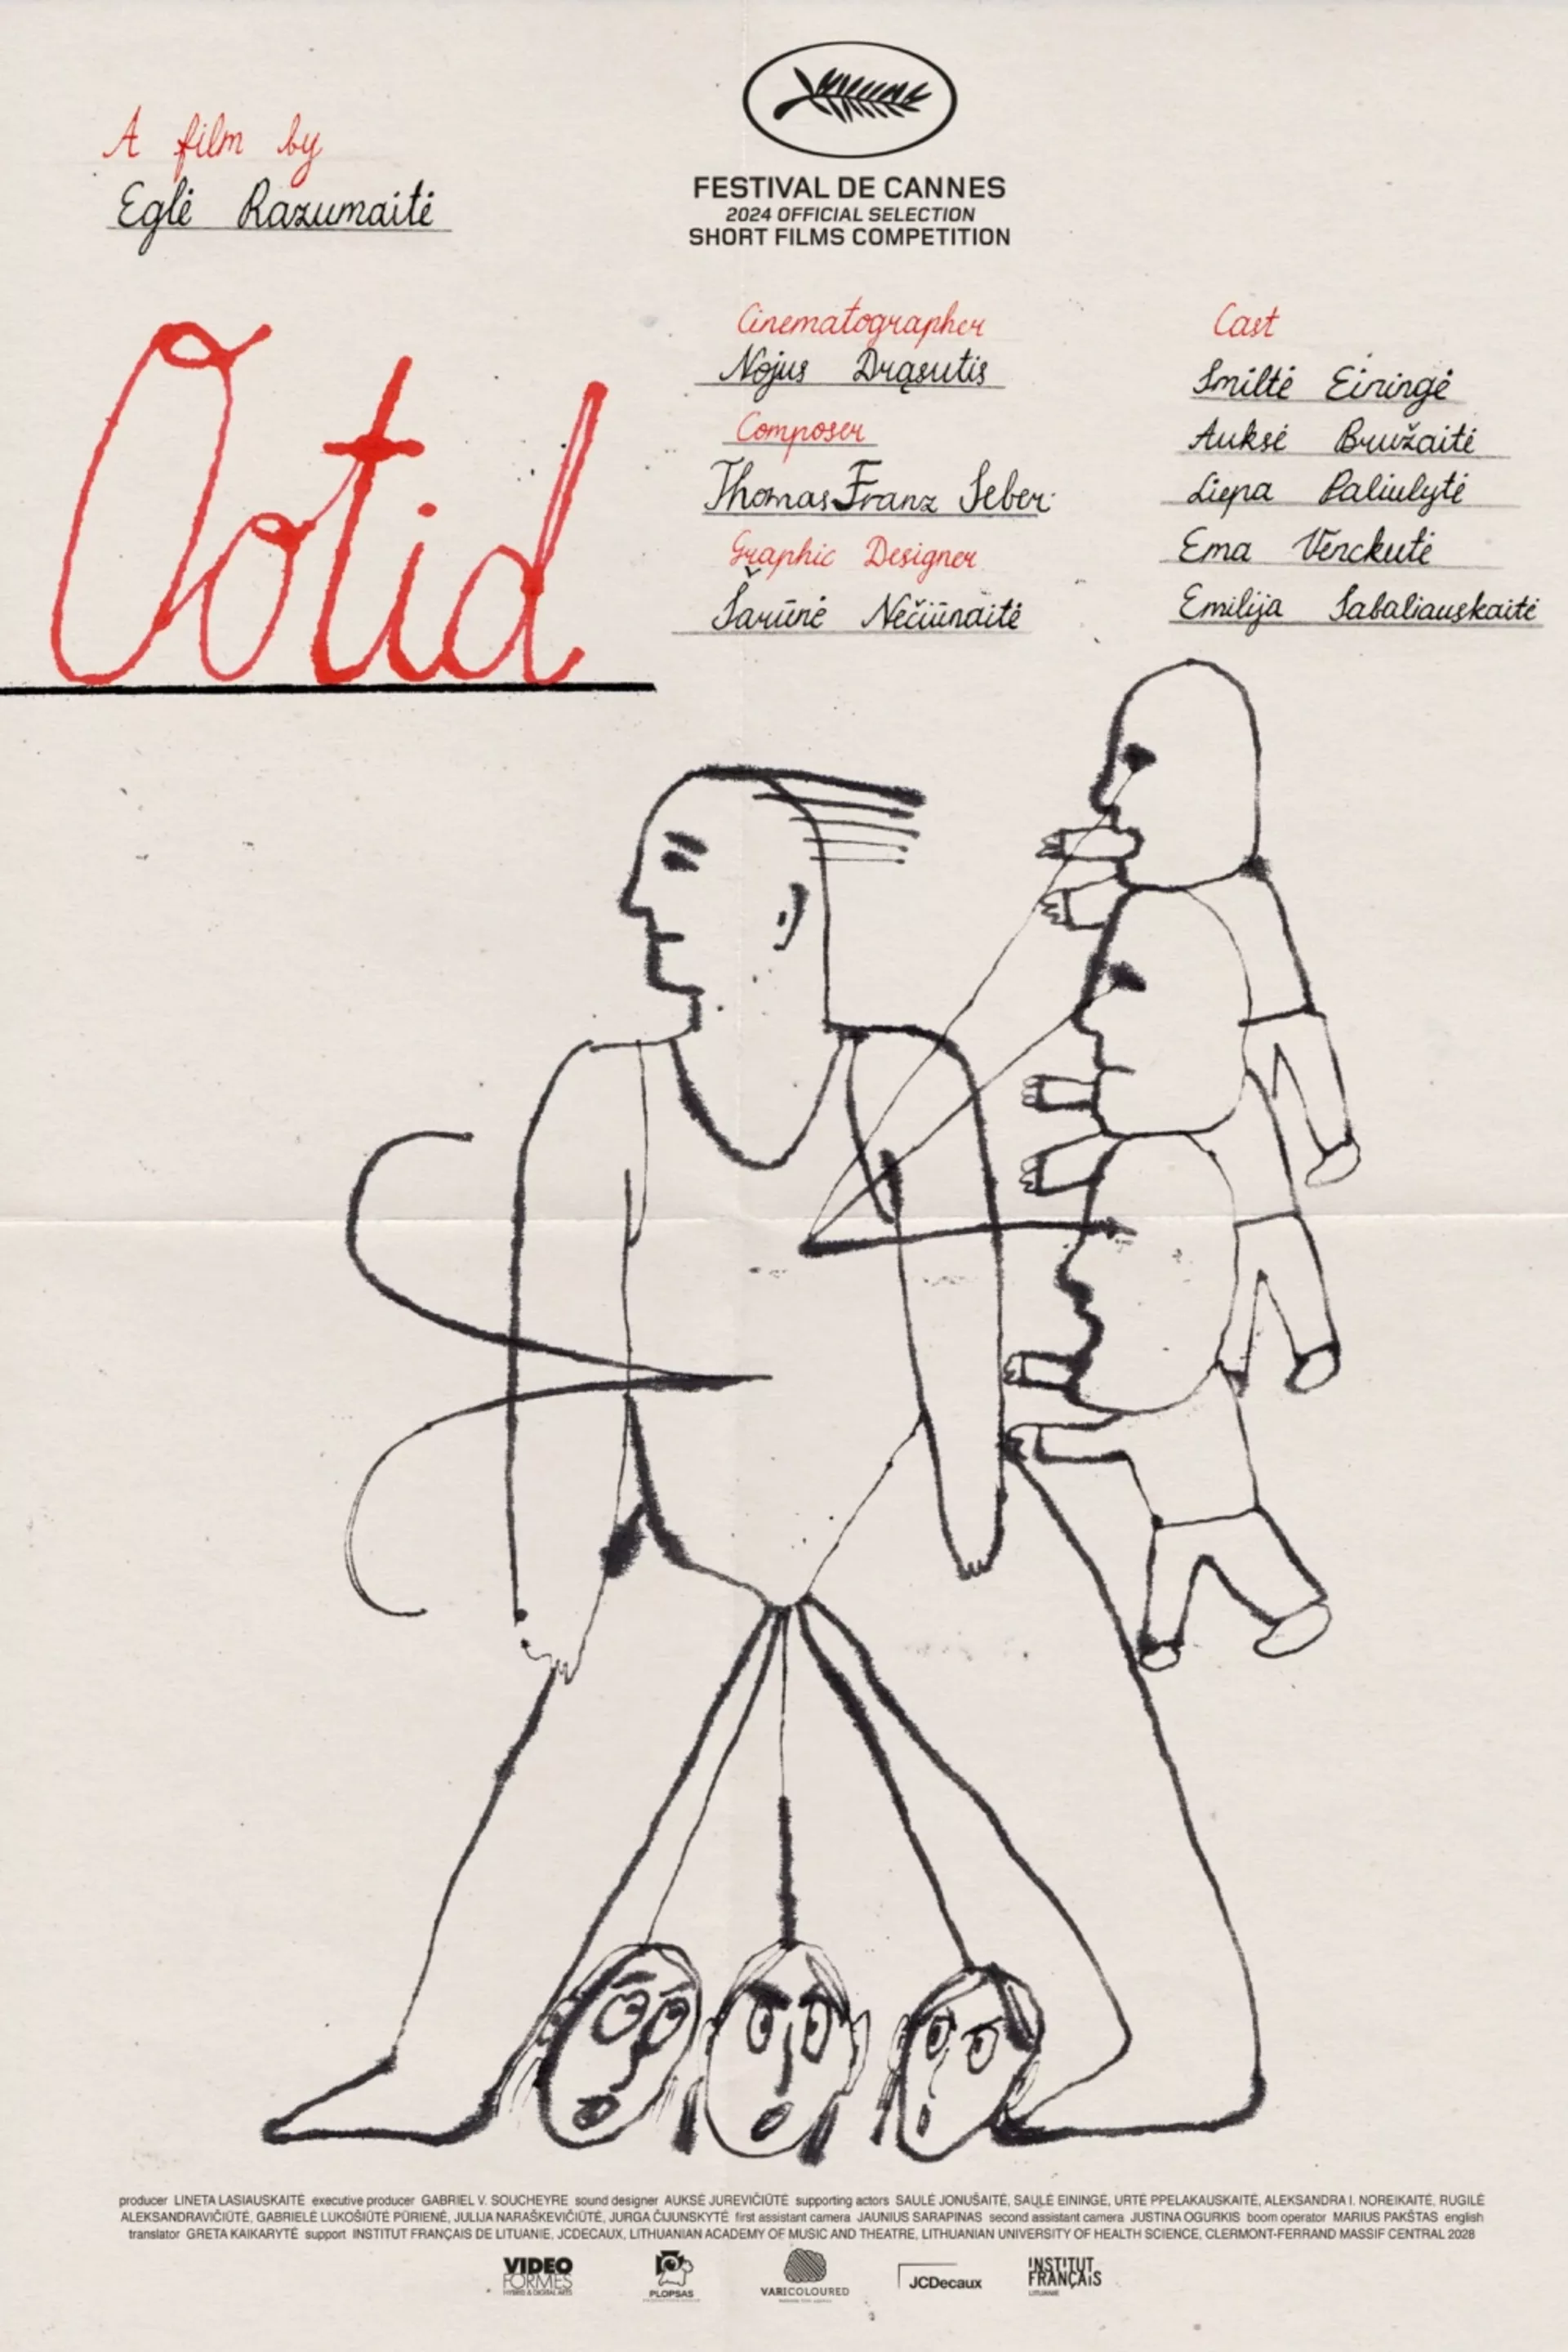 A film by
Eglė Razumaitė
FESTIVAL DE CANNES
2024 OFFICIAL SELECTION
SHORT FILMS COMPETITION
Ootid
Cinematographer
Nojus Drąsutis
Composer
Thomas Franz Seber
Graphic Designer
Šarūnė Nečiūnaitė
Cast
Smiltė Einingė
Auksė Bružaitė
Liepa Paliulytė
Ema Venckutė
Emilija Sabaliauskaitė
producer LINETA LASIAUSKAITĖ executive producer GABRIEL V. SOUCHEYRE sound designer AUKSĖ JUREVIČIŪTĖ supporting actors SAULĖ JONUŠAITĖ, SAULĖ EININGĖ, URTĖ PPELAKAUSKAITĖ, ALEKSANDRA I. NOREIKAITĖ, RUGILĖ
ALEKSANDRAVIČIŪTĖ, GABRIELĖ LUKOŠIŪTĖ PŪRIENĖ, JULIJA NARAŠKEVIČIŪTĖ, JURGA ČIJUNSKYTĖ first assistant camera JAUNIUS SARAPINAS second assistant camera JUSTINA OGURKIS boom operator MARIUS PAKŠTAS english
translator GRETA KAIKARYTĖ support INSTITUT FRANÇAIS DE LITUANIE, JCDECAUX, LITHUANIAN ACADEMY OF MUSIC AND THEATRE, LITHUANIAN UNIVERSITY OF HEALTH SCIENCE, CLERMONT-FERRAND MASSIF CENTRAL 2028
VIDEO
FORMES
HYBRID & DIGITAL ARTS
PLOPSAS
VARICOLOURED
JCDecaux
INSTITUT
FRANÇAIS
LITUANIE